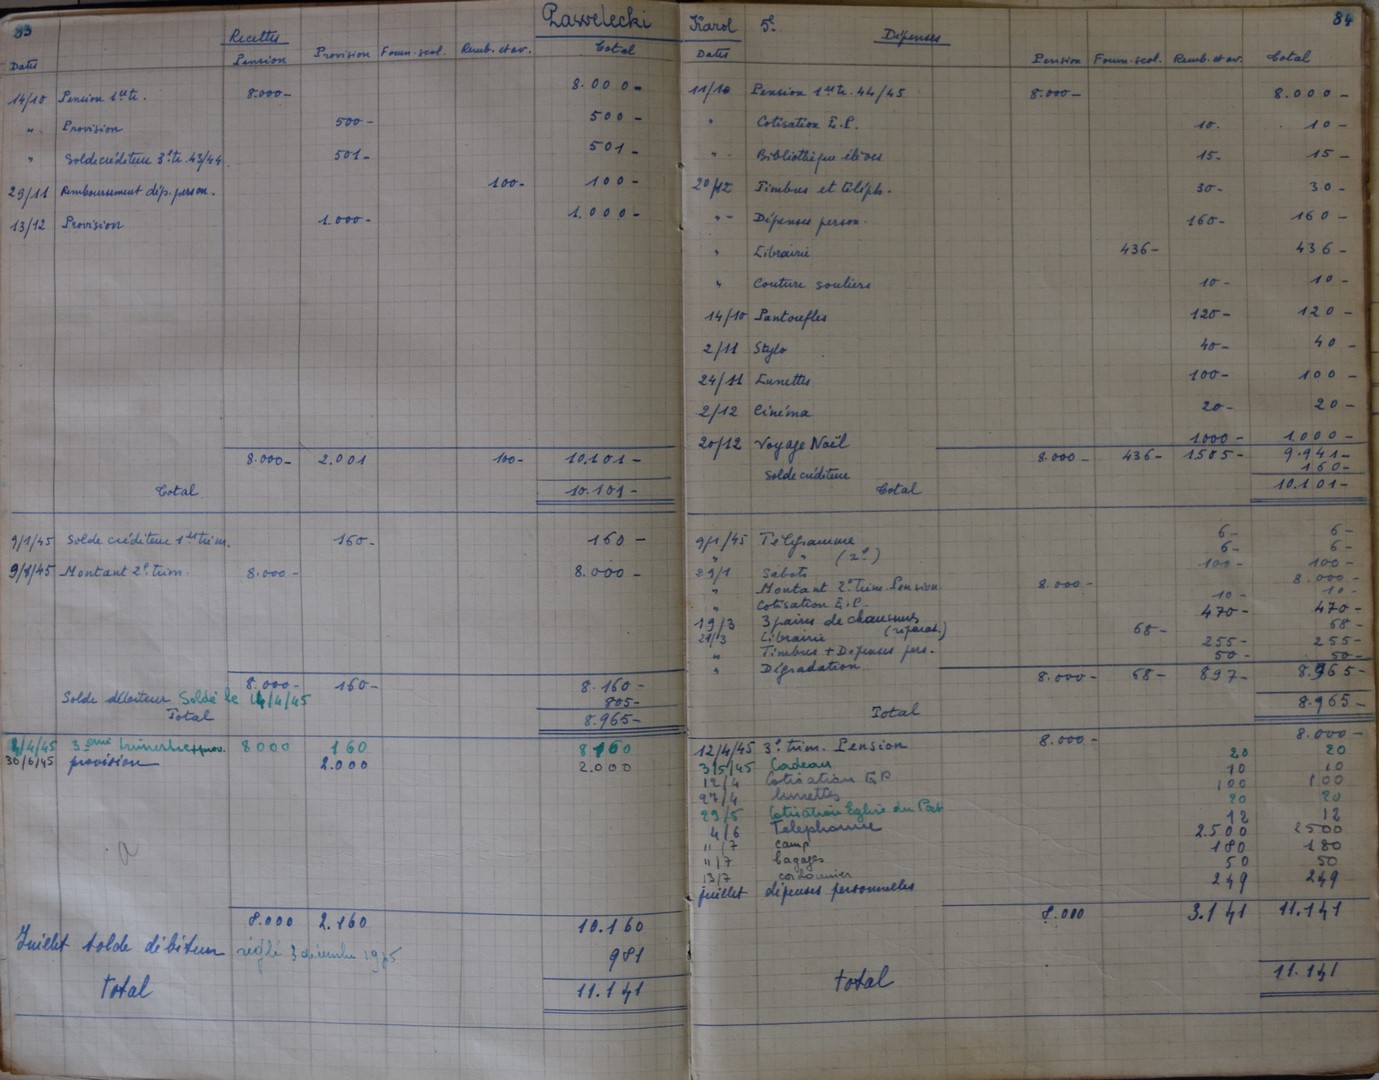 83
Pawelecki
Recettes
Dates Pension Provision Fourn. scol. Remb. et av. Total
14/10 Pension 1er tr. 8.000- 8.000-
" Provision 500- 500-
" Solde créditeur 3e tr. 43/44 501- 501-
29/11 Remboursement dép. person. 100- 100-
13/12 Provision 1.000- 1.000-
8.000- 2.001 100- 10.101-
Total 10.101-
9/1/45 Solde créditeur 1er trim. 160- 160-
9/1/45 Montant 2e trim. 8.000- 8.000-
8.000- 160- 8.160-
Solde débiteur Soldé le 14/4/45 805-
Total 8.965-
/4/45 3eme trimestre + prov. 8000 160 8160
30/6/45 provision 2.000 2.000
a
8.000 2.160 10.160
Juillet solde débiteur réglé 3 décembre 1945 981
Total 11.141
84
Karol 5e
Dépenses
Dates Pension Fourn. scol. Remb. et av. Total
11/10 Pension 1er tr. 44/45 8.000- 8.000-
" Cotisation E.P. 10. 10-
" Bibliothèque élèves 15- 15-
20/12 Timbres et téléph. 30- 30-
" Dépenses person. 160- 160-
" Librairie 436- 436-
" Couture souliers 10- 10-
14/10 Pantoufles 120- 120-
2/11 Stylo 40- 40-
24/11 Lunettes 100- 100-
2/12 Cinéma 20- 20-
20/12 Voyage Noël 1.000- 1.000-
8.000- 436- 1.505- 9.941-
Solde créditeur 160-
Total 10.101-
9/1/45 Télégramme 6- 6-
" " (2e) 6- 6-
29/1 Sabots 100- 100-
" Montant 2e trim. Pension 8.000- 8.000-
" Cotisation E.P. 10- 10-
19/3 3 paires de chaussures (réparat.) 470- 470-
21/3 Librairie 68- 68-
" Timbres + Dépenses pers. 255- 255-
" Dégradation 50- 50-
8.000- 68- 897- 8.965-
Total 8.965-
12/4/45 3e trim. Pension 8.000- 8.000-
3/5/45 Cadeau 20 20
12/4 Cotisation E P 10 10
27/4 lunettes 100 100
29/5 Cotisation Eglise du 20 20
4/6 Telephone 12 12
11/7 camp 2.500 2500
11/7 bagages 180 180
13/7 cordonnier 50 50
juillet dépenses personnelles 249 249
8.000 3.141 11.141
Total 11.141